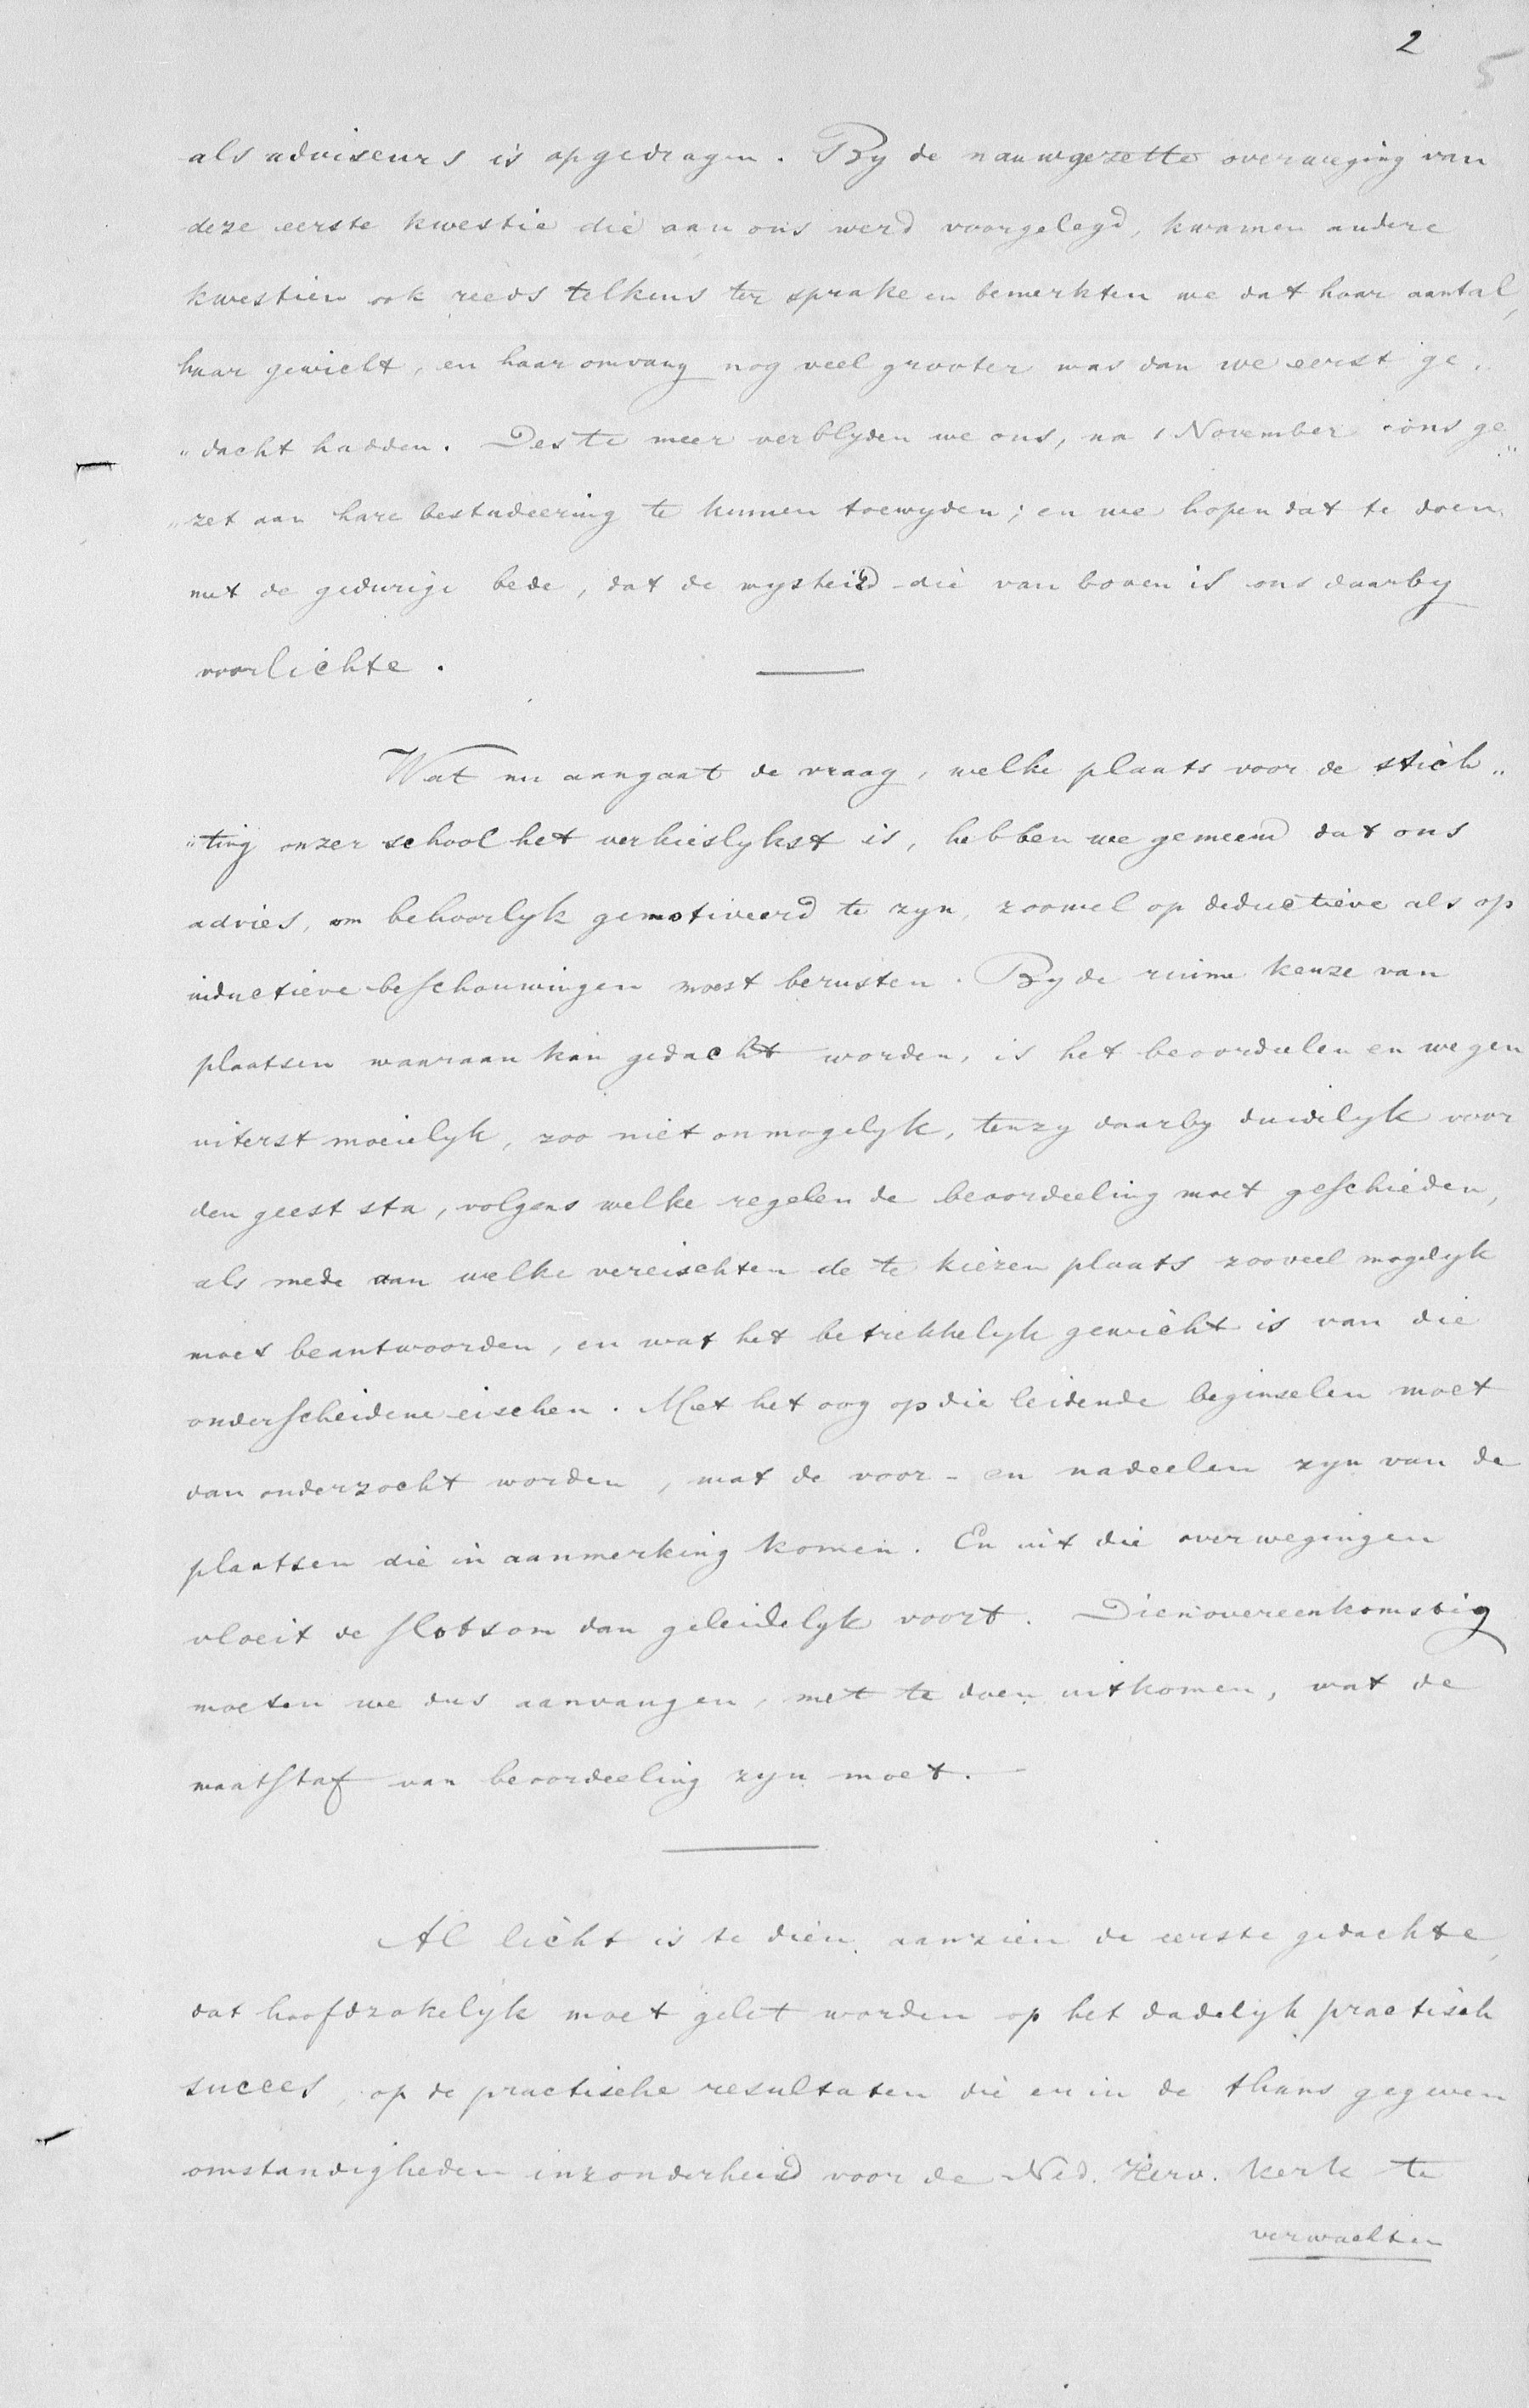 2
5
als adviseurs is opgedragen. By de nauwgezette overweging van
deze eerste kwestie die aan ons werd voorgelegd, kwamen andere
kwestien ook reeds telkens ter sprake en bemerkten we dat haar aantal,
haar gewicht, en haar omvang nog veel grooter was dan we eerst ge„
„dacht hadden. Des te meer verblyden we ons, na 1 November ons ge„
„zet aan hare bestudeering te kunnen toewyden; en we hopen dat te doen
met de gedurige bede, dat de wysheid die van boven is ons daarby
voorlichte.
Wat nu aangaat de vraag, welke plaats voor de stich„
„ting onzer school het verkieslykst is, hebben we gemeend dat ons
advies, om behoorlyk gemotiveerd te zyn, zoowel op deductieve als op
inductieve beschouwingen moest berusten. By de ruime keuze van
plaatsen waaraan kan gedacht worden, is het beoordeelen en wegen
uiterst moeielyk, zoo niet onmogelyk, tenzy daarby duidelyk voor
den geest sta, volgens welke regelen de beoordeeling moet geschieden,
als mede aan welke vereischten de te kiezen plaats zooveel mogelyk
moet beantwoorden, en wat het betrekkelyk gewicht is van die
onderscheidene eischen. Met het oog op die leidende beginselen moet
dan onderzocht worden, wat de voor- en nadeelen zyn van de
plaatsen die in aanmerking komen. En uit die overwegingen
vloeit de slotsom dan geleidelyk voort. Dienovereenkomstig
moeten we dus aanvangen, met te doen uitkomen, wat de
maatstaf van beoordeeling zyn moet.
Al licht is te dien aanzien de eerste gedachte,
dat hoofdzakelyk moet gelet worden op het dadelyk practisch
succes, op de practische resultaten die er in de thans gegeven
omstandigheden inzonderheid voor de Ned. Herv. Kerk te
verwachten